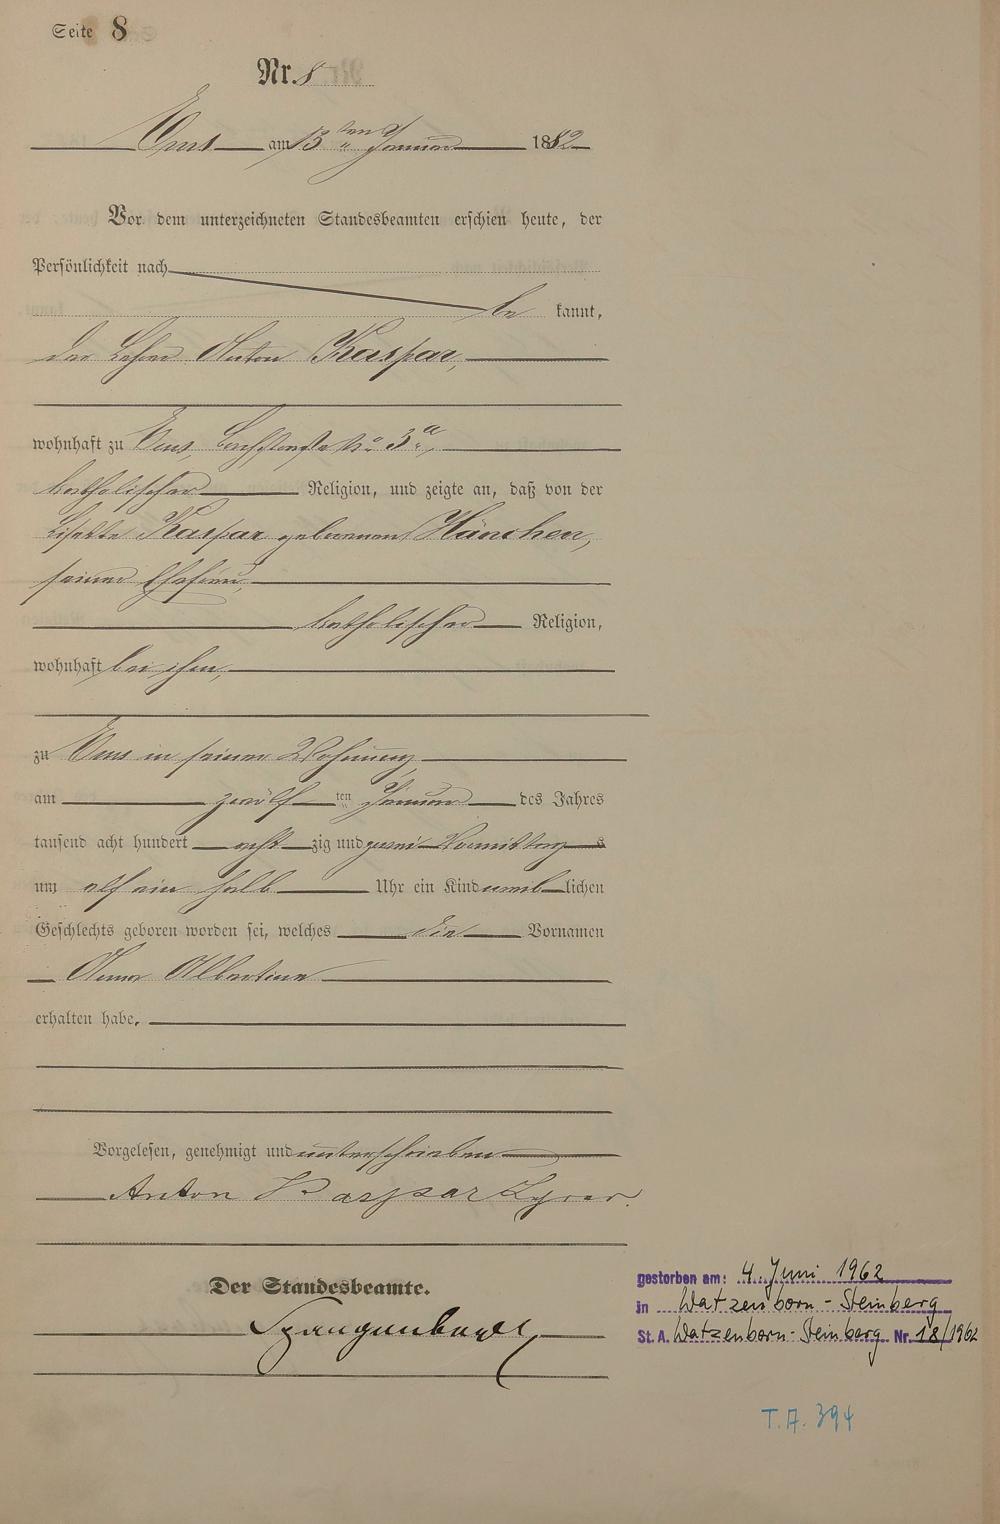 Seite 8
Nr. 8
Ems am 13ten Januar 1882
Vor dem unterzeichneten Standesbeamten erschien heute, der
Persönlichkeit nach
be kannt,
der Lehrer Anton Kaspar,
wohnhaft zu Ems, No 3a,
katholischer Religion, und zeigte an, daß von der
Lisette Kaspar geborenen Hänchen,
seiner Ehefrau,
katholischer Religion,
wohnhaft bei ihm,
zu Ems in seiner Wohnung
am zwölf ten Januar des Jahres
tausend acht hundert acht zig und zwei Vormittags
um elf ein halb Uhr ein Kind weib lichen
Geschlechts geboren worden sei, welches die Vornamen
Anna Albertine
erhalten habe.
Vorgelesen, genehmigt und unterschrieben
Anton Kaspar Lehrer.
Der Standesbeamte.
gestorben am: 4. Juni 1962
in Watzenborn-Steinberg
St. A. Watzenborn-Steinberg Nr. 18/1962
T. A. 394